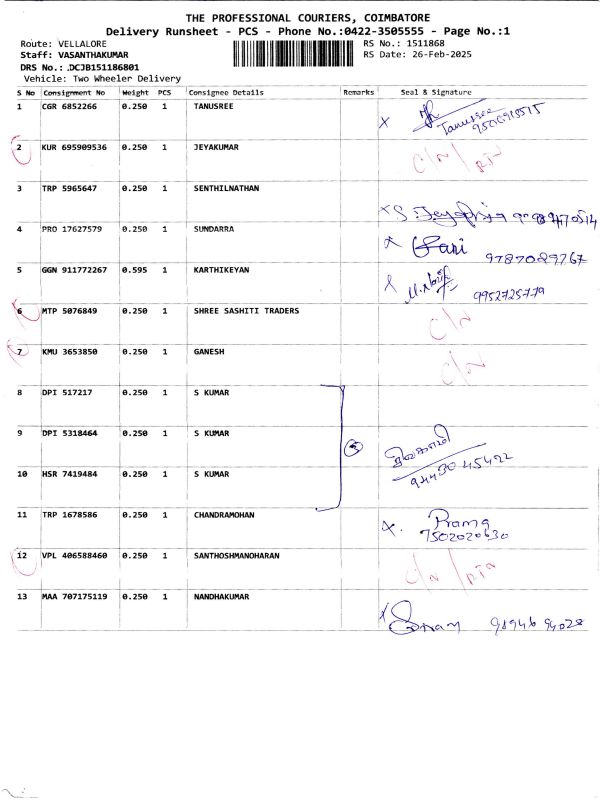 THE PROFESSIONAL COURIERS, COIMBATORE
Delivery Runsheet - PCS - Phone No.:0422-3505555 - Page No.:1
Route: VELLALORE RS No.: 1511868
Staff: VASANTHAKUMAR RS Date: 26-Feb-2025
DRS No.: .DCJB151186801
Vehicle: Two Wheeler Delivery
S No Consignment No Weight PCS Consignee Details Remarks Seal & Signature
1 CGR 6852266 0.250 1 TANUSREE
X Tanusree
2 KUR 695909536 0.250 1 JEYAKUMAR C/N / RTN
3 TRP 5965647 0.250 1 SENTHILNATHAN
4 PRO 17627579 0.250 1 SUNDARRA
X 9787029767
5 GGN 911772267 0.595 1 KARTHIKEYAN
X 9952725779
6 MTP 5076849 0.250 1 SHREE SASHITI TRADERS C/N
7 KMU 3653850 0.250 1 GANESH C/N
8 DPI 517217 0.250 1 S KUMAR
9 DPI 5318464 0.250 1 S KUMAR
10 HSR 7419484 0.250 1 S KUMAR
9443045422
11 TRP 1678586 0.250 1 CHANDRAMOHAN X. Rama
7502020630
12 VPL 406588460 0.250 1 SANTHOSHMANOHARAN C/N / RTN
13 MAA 707175119 0.250 1 NANDHAKUMAR
X 98946 94028